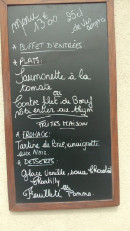 menu à
13€00 25cl
de Vin
compris
* BUFFET D'ENTRÉES
* PLATS:
Saumonette à la
tomate
ou
Contre filet de Bœuf
au thym
FRITES MAISON
* FROMAGE:
Tartine de Brie,
aux Noix.
* DESSERTS:
Glace Vanille, sauce Chocolat
Chantilly
ou
Feuilleté Pomme.